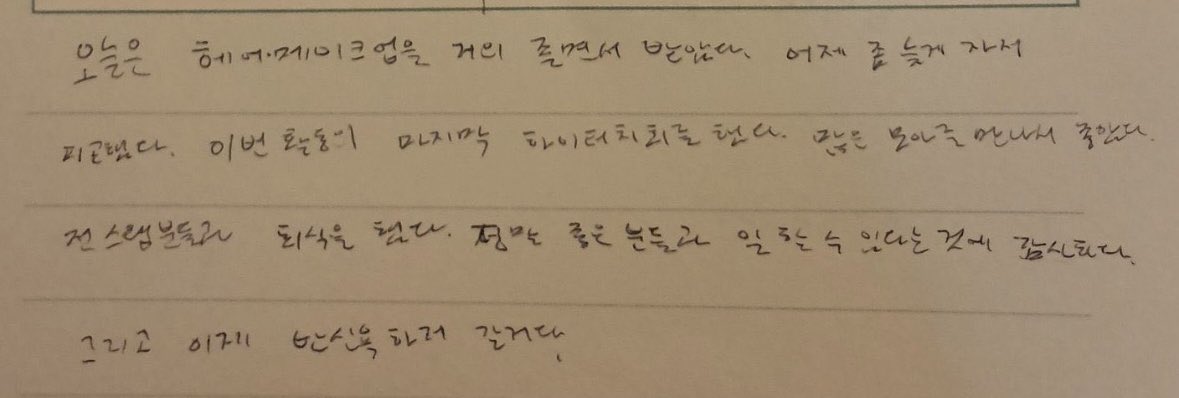 오늘은 헤어·메이크업을 거의 졸면서 받았다. 어제 좀 늦게 자서
피곤했다. 이번 활동의 마지막 하이터치회를 했다. 많은 모아를 만나서 좋았다.
전 스탭분들과 회식을 했다. 정말 좋은 분들과 일 할 수 있다는 것에 감사하다.
그리고 이제 반신욕하러 갈거다.